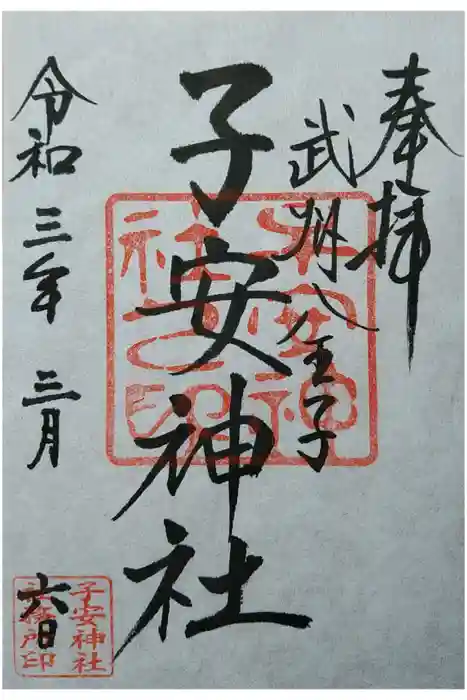 奉拝
武州八王子
子安神社
令和三年三月六日
子安神社之印
子安神社
社務所印